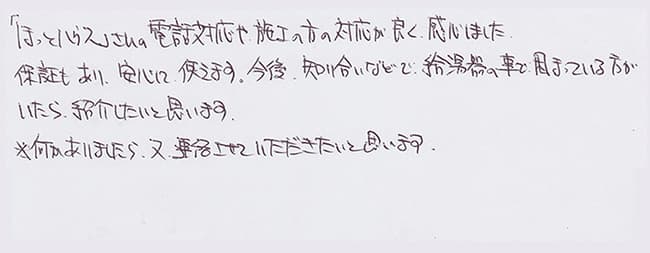 「ほっとハウス」さんの電話対応や施工の方の対応が良く感心しました.
保証もあり、安心して使えます。今後、知り合いなどで給湯器の事で困っている方が
いたら、紹介したいと思います.
※何かありましたら、又、連絡させていただきたいと思います.